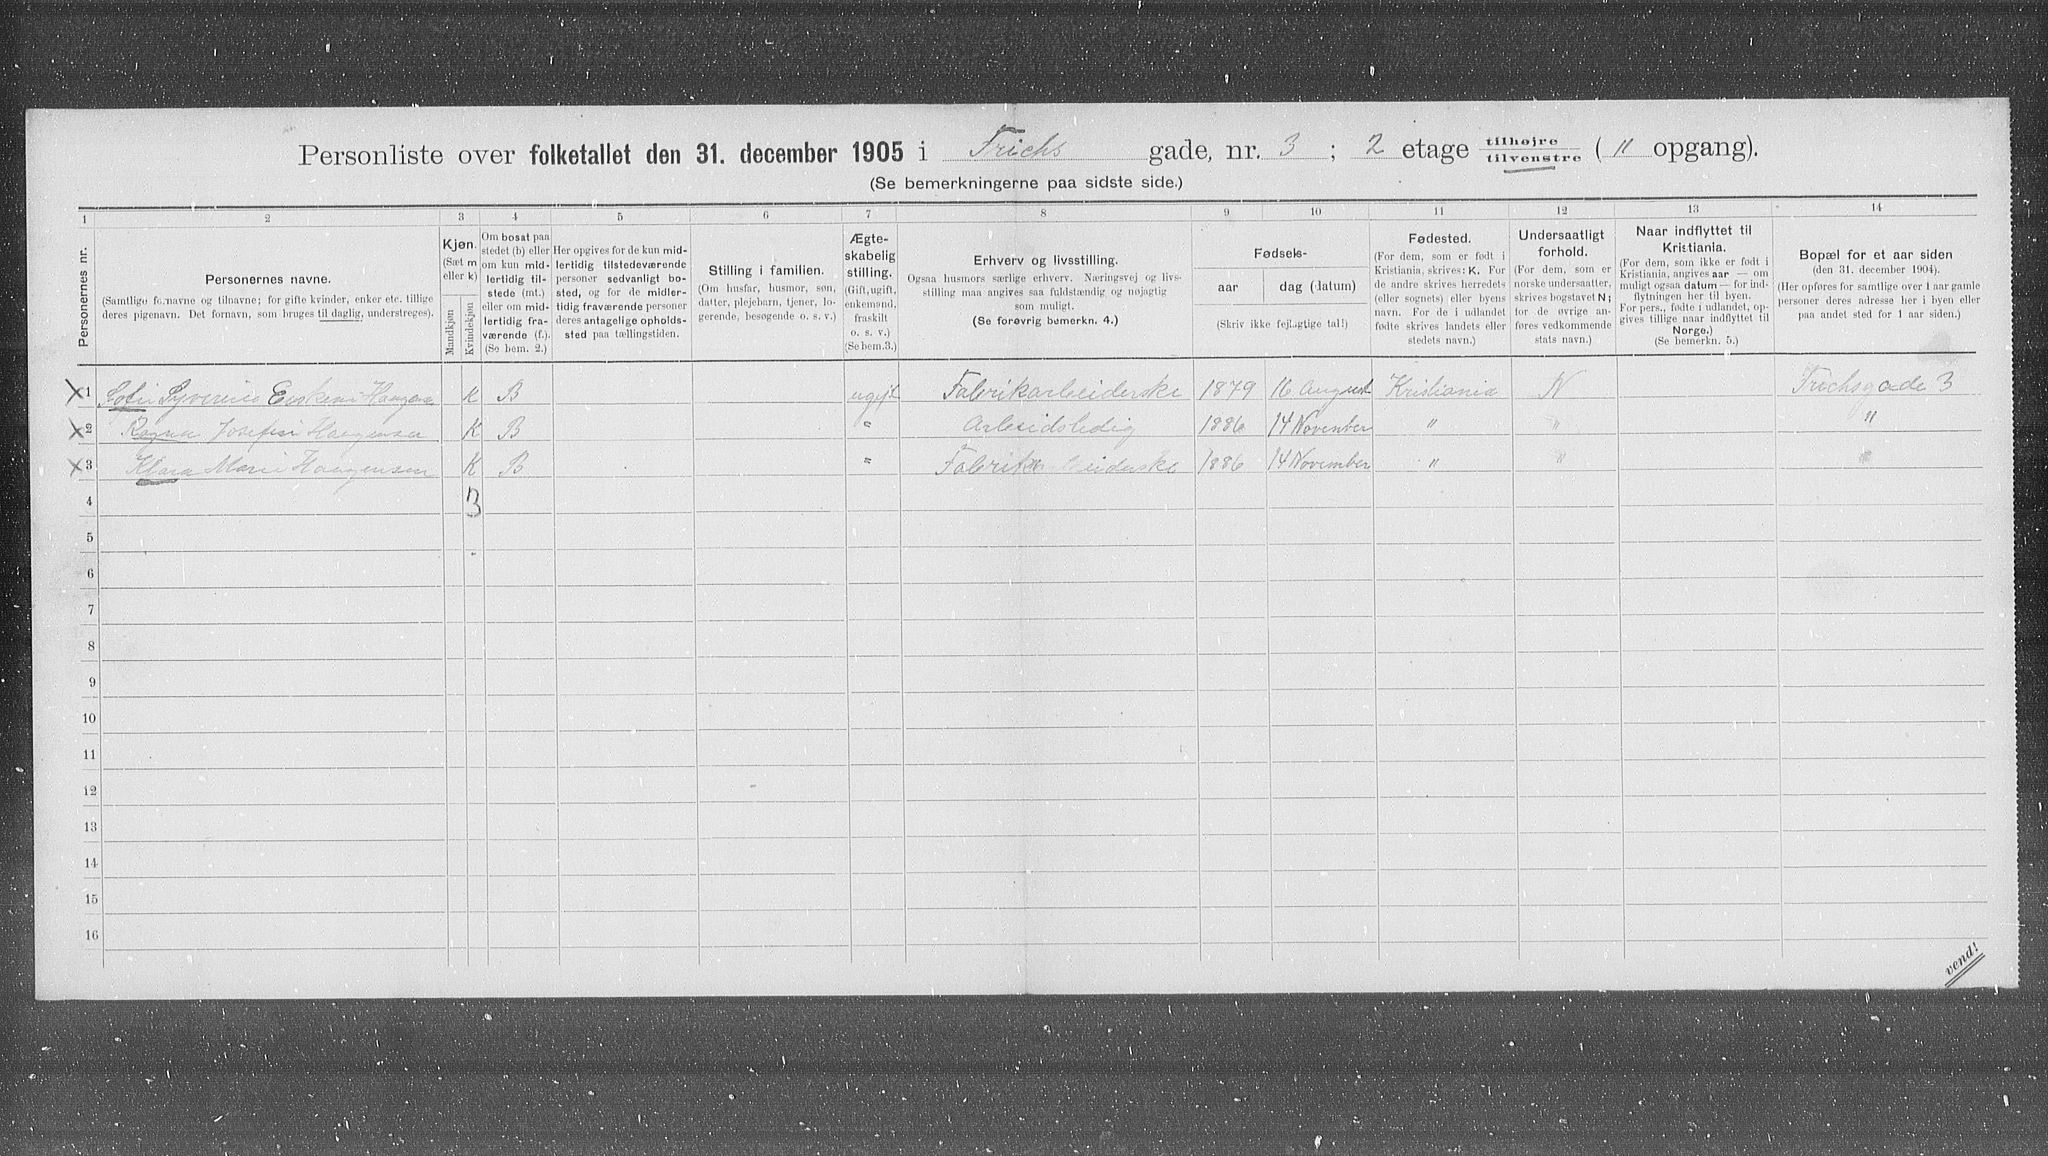 Personliste over folketallet den 31. december 1905 i Frichs gade, nr. 3 ; 2 etage tilhøjre / tilvenstre ( " opgang).
(Se bemerkningerne paa sidste side.)
1 2 3 4 5 6 7 8 9 10 11 12 13 14
Personernes nr.
Personernes navne.
(Samtlige fornavne og tilnavne; for gifte kvinder, enker etc. tillige deres pigenavn. Det fornavn, som bruges til daglig, understreges).
Kjøn.
(Sæt m eller k)
Mandkjøn
Kvindekjøn
Om bosat paa stedet (b) eller om kun midlertidig tilstede (mt.) eller om midlertidig fraværende (f.).
(Se bem. 2.)
Her opgives for de kun midlertidig tilstedeværende personer sedvanligt bosted, og for de midlertidig fraværende personer deres antagelige opholdssted paa tællingstiden.
Stilling i familien.
(Om husfar, husmor, søn, datter, plejebarn, tjener, logerende, besøgende o. s. v.)
Ægteskabelig stilling.
(Gift, ugift, enkemand, fraskilt o. s. v.)
(Se bem.3.)
Erhverv og livsstilling.
Ogsaa husmors særlige erhverv. Næringsvej og livsstilling maa angives saa fuldstændig og nøjagtig som muligt.
(Se forøvrig bemerkn. 4.)
Fødsels-
aar dag (datum)
(Skriv ikke fejlagtige tal!)
Fødested.
(For dem, som er født i Kristiania, skrives: K. For de andre skrives herredets (eller sognets) eller byens navn. For de i udlandet fødte skrives landets eller stedets navn.)
Undersaatligt forhold.
(For dem, som er norske undersaatter, skrives bogstavet N; for de øvrige anføres vedkommende stats navn.)
Naar indflyttet til Kristiania.
(For dem, som ikke er født i Kristiania, angives aar — om muligt ogsaa datum — for indflytningen her til byen. For pers., fødte i udlandet, opgives tillige naar indflyttet til Norge.)
(Se bemerkn. 5.)
Bopæl for et aar siden
(den 31. december 1904).
(Her opføres for samtlige over 1 aar gamle personer deres adresse her i byen eller paa andet sted for 1 aar siden.)
1 Sofie K B ugift Fabrikarbeiderske 1879 16 August Kristiania N Frichsgade 3
2 Ragna Josefine Haagensen K B " Arbeidsledig 1886 14 November " " "
3 Klara Marie Haagensen K B " Fabrikarbeiderske 1886 14 November " " "
4 3
5
6
7
8
9
10
11
12
13
14
15
16
vend!